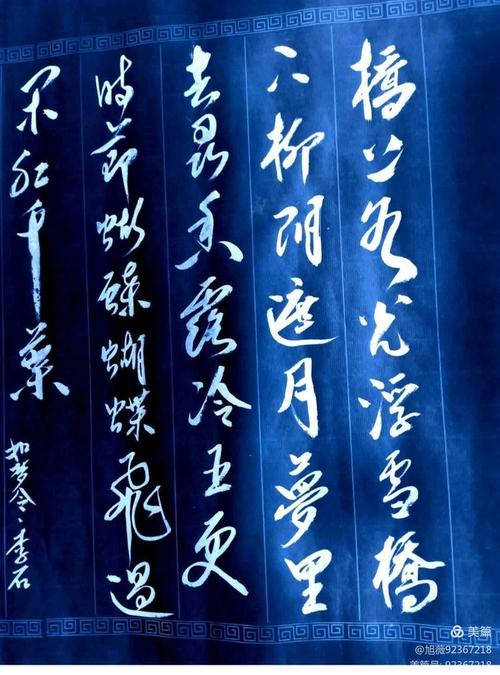 橋上水光浮雪橋
下柳阴遮月夢里
去寻香露冷五更
時節蝴蝶蝴蝶飛過
闲红千葉
如梦令、李石
美篇
@旭薇92367218
美篇号:92367218